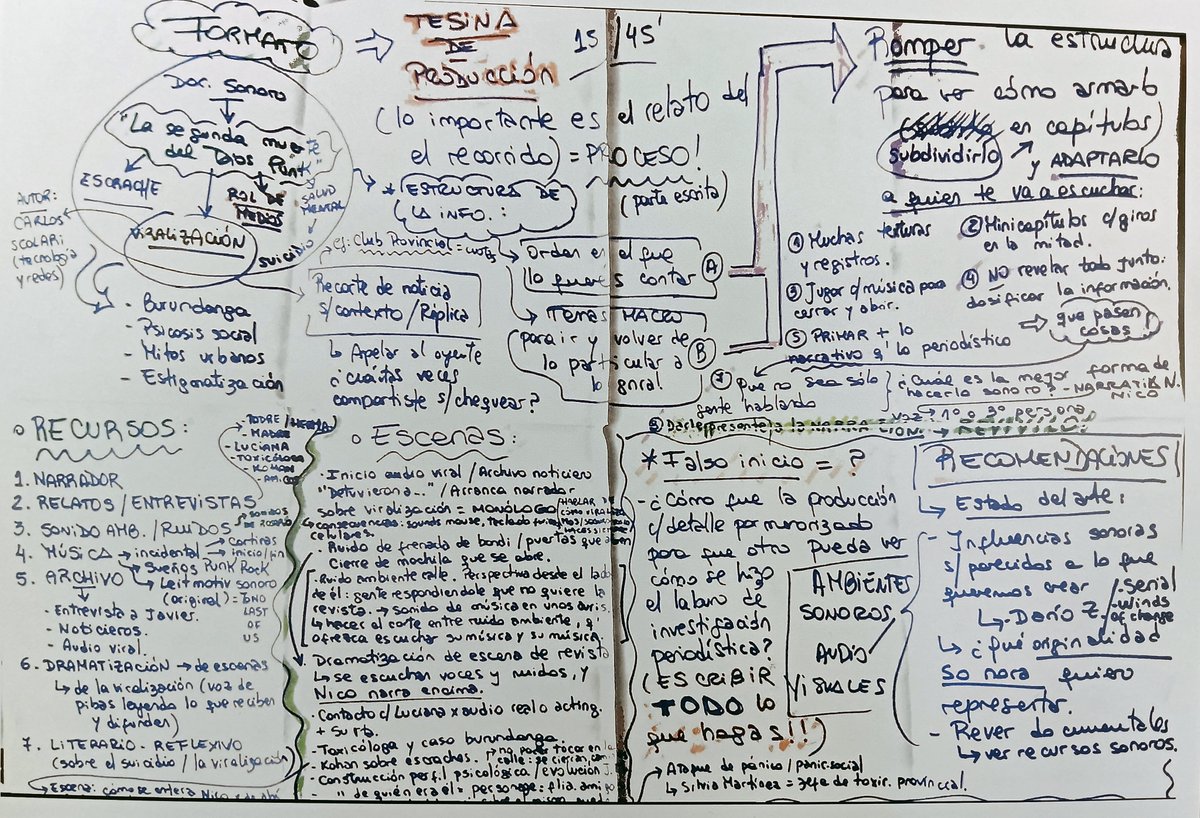 FORMATO
Doc. Sonoro
"La segunda muerte
del Dios Punk"
ESCRACHE
ROL DE
MEDIOS
y SALUD
MENTAL
VIRALIZACIÓN
SUICIDIO
AUTOR:
CARLOS
SCOLARI
(tecnología
y redes)
- Burundanga
- Psicosis social
- Mitos urbanos
- Estigmatización
TESINA
DE
PRODUCCIÓN
15 / 45'
(lo importante es el relato del
el recorrido) = PROCESO!
* ESTRUCTURA DE
LA INFO.:
(parte escrita)
Ej: Club Provincial =
Recorte de noticia
s/contexto / Réplica
↳ Apelar al oyente
¿cuántas veces
compartiste s/chequear?
→ Orden en el que
lo querés contar
A
→ Temas MACRO
para ir y volver de
lo particular a
lo gnral.
B
Romper la estructura
para ver cómo armarlo
en capítulos)
subdividirlo
y ADAPTARLO
a quien te va a escuchar:
① Muchas texturas
y registros.
② Minicapítulos c/giros
en la mitad.
③ Jugar c/música para
cerrar y abrir.
④ NO revelar todo junto:
dosificar la información.
⑤ PRIMAR + lo
narrativo q' lo periodístico
⇒ que pasen
cosas
Que no sea sólo
gente hablando
¿Cuál es la mejor forma de
hacerlo sonoro? - NARRATIVA N.
NICO
Darle presente a la NARRACIÓN
→ VOZ 1º o 3º persona
o RECURSOS:
1. NARRADOR
2. RELATOS / ENTREVISTAS
- MADRE
- LUCIANA
- TOXICÓLOGA
- KOHAN
- AMIGOS
3. SONIDO AMB. / RUIDOS
4. MÚSICA → incidental → cortinas
→ inicio/fin
→ Sueños Punk Rock
→ Leitmotiv sonoro
(original) = TONO
LAST
OF
US
5. ARCHIVO
- Entrevista a Javier.
- Noticieros.
- Audio viral.
6. DRAMATIZACIÓN → de escenas
↳ de la viralización (voz de
pibas leyendo lo que reciben
y difunden)
7. LITERARIO - REFLEXIVO
(sobre el suicidio / la viralización)
Escena: cómo se entera Nico
o Escenas:
· Inicio audio viral / Archivo noticiero
"Detuvieron a..." / Arranca narrador
sobre viralización = MONÓLOGO
consecuencias: sounds mouse, teclado
celulares.
· Ruido de frenada de bondi / puertas que abren
· Cierre de mochila que se abre.
· Ruido ambiente calle. Perspectiva desde el lado
de él: gente respondiéndole que no quiere la
revista. → sonido de música en unos auris.
↳ hacer el corte entre ruido ambiente, q'
ofrezca escuchar su música y su música.
· Dramatización de escena de revista
↳ se escuchan voces y ruidos, y
Nico narra encima.
· Contacto c/Luciana x audio real o acting.
· Toxicóloga y caso burundanga.
- Kohan sobre escraches.
→ no poder tocar en la
calle: se cierran
- Construcción perfil psicológico / evolución
" de quién era él = personaje: flia. amigo
* Falso inicio = ?
- ¿Cómo fue la producción
c/detalle pormenorizado
para que otro pueda ver
cómo se hizo
el laburo de
investigación
periodística?
(ESCRIBIR
TODO lo
que hagas!!!)
AMBIENTES
SONOROS,
AUDIO
VISUALES
Ataque de pánico / panic social
↳ Silvia Martínez = Jefa de toxic. provincial.
RECOMENDACIONES
↳ Estado del arte:
- Influencias sonoras
s/ parecidos a lo que
queremos crear
↳ Darío Z.
- Serial
- Winds
of change
↳ ¿Qué originalidad
sonora quiero
representar.
- Rever documentales
↳ ver recursos sonoros.